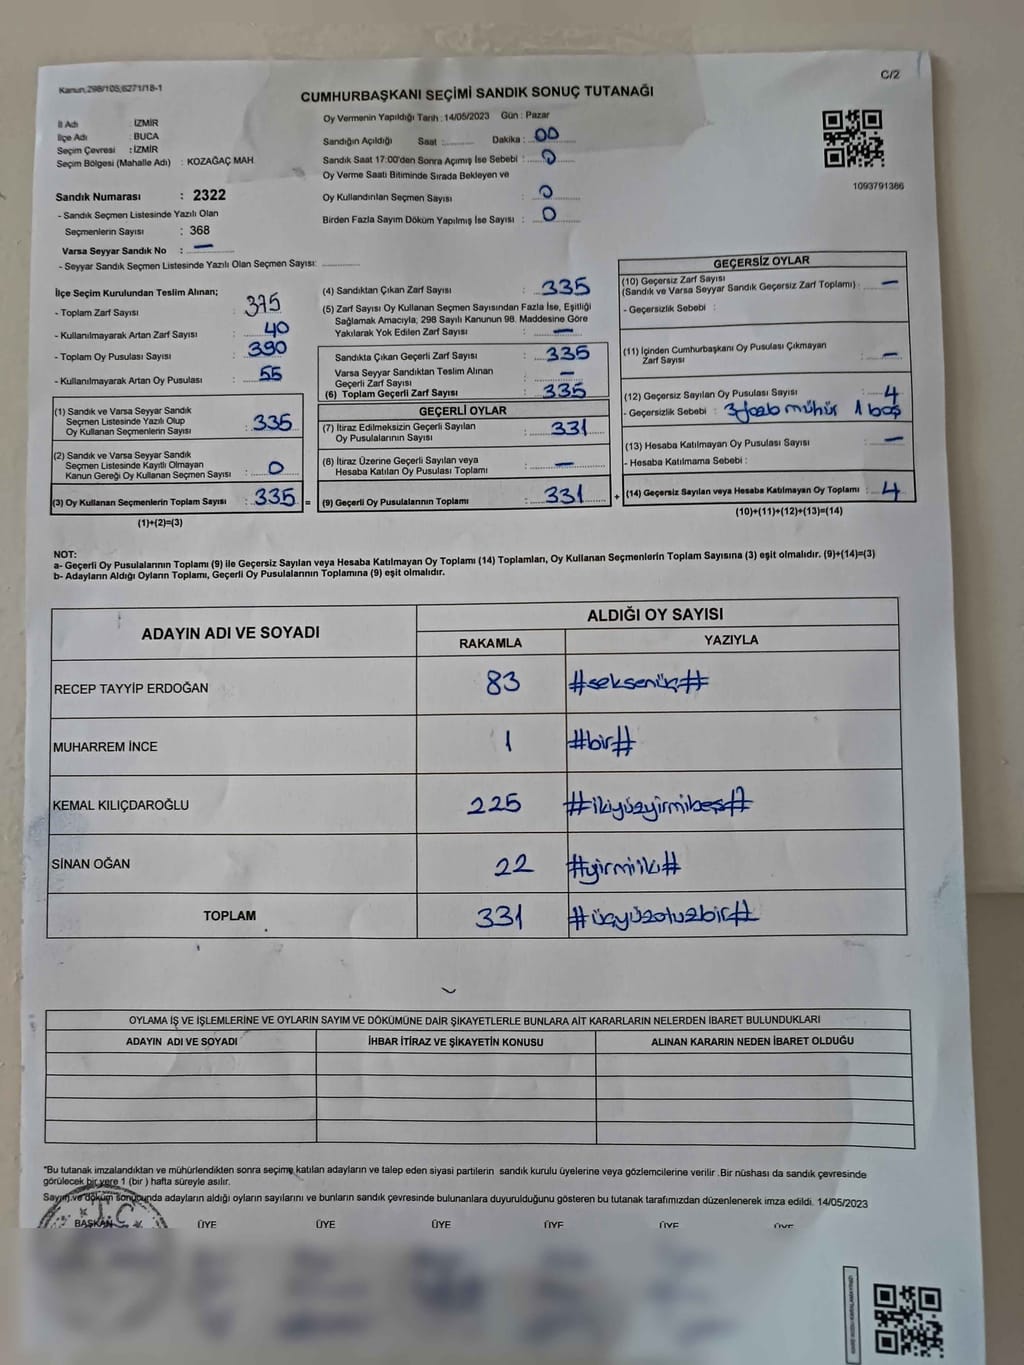 Kanun,298/105,6271/18-1
C/2
CUMHURBAŞKANI SEÇİMİ SANDIK SONUÇ TUTANAĞI
İl Adı : İZMİR
İlçe Adı : BUCA
Seçim Çevresi : İZMİR
Seçim Bölgesi (Mahalle Adı) : KOZAĞAÇ MAH
Sandık Numarası : 2322
- Sandık Seçmen Listesinde Yazılı Olan
Seçmenlerin Sayısı : 368
Varsa Seyyar Sandık No : —
- Seyyar Sandık Seçmen Listesinde Yazılı Olan Seçmen Sayısı:
Oy Vermenin Yapıldığı Tarih : 14/05/2023 Gün : Pazar
Sandığın Açıldığı Saat : Dakika : 00
Sandık Saat 17:00'den Sonra Açımış İse Sebebi : 0
Oy Verme Saati Bitiminde Sırada Bekleyen ve
Oy Kullandırılan Seçmen Sayısı : 0
Birden Fazla Sayım Döküm Yapılmış İse Sayısı : 0
1093791366
İlçe Seçim Kurulundan Teslim Alınan;
- Toplam Zarf Sayısı : 375
- Kullanılmayarak Artan Zarf Sayısı : 40
- Toplam Oy Pusulası Sayısı : 390
- Kullanılmayarak Artan Oy Pusulası : 55
(1) Sandık ve Varsa Seyyar Sandık
Seçmen Listesinde Yazılı Olup
Oy Kullanan Seçmenlerin Sayısı : 335
(2) Sandık ve Varsa Seyyar Sandık
Seçmen Listesinde Kayıtlı Olmayan
Kanun Gereği Oy Kullanan Seçmen Sayısı : 0
(3) Oy Kullanan Seçmenlerin Toplam Sayısı : 335 =
(1)+(2)=(3)
(4) Sandıktan Çıkan Zarf Sayısı : 335
(5) Zarf Sayısı Oy Kullanan Seçmen Sayısından Fazla İse, Eşitliği
Sağlamak Amacıyla; 298 Sayılı Kanunun 98. Maddesine Göre
Yakılarak Yok Edilen Zarf Sayısı : —
Sandıkta Çıkan Geçerli Zarf Sayısı : 335
Varsa Seyyar Sandıktan Teslim Alınan
Geçerli Zarf Sayısı : —
(6) Toplam Geçerli Zarf Sayısı : 335
GEÇERLİ OYLAR
(7) İtiraz Edilmeksizin Geçerli Sayılan
Oy Pusulalarının Sayısı : 331
(8) İtiraz Üzerine Geçerli Sayılan veya
Hesaba Katılan Oy Pusulası Toplamı : —
(9) Geçerli Oy Pusulalarının Toplamı : 331 +
GEÇERSİZ OYLAR
(10) Geçersiz Zarf Sayısı
(Sandık ve Varsa Seyyar Sandık Geçersiz Zarf Toplamı) : —
- Geçersizlik Sebebi :
(11) İçinden Cumhurbaşkanı Oy Pusulası Çıkmayan
Zarf Sayısı : —
(12) Geçersiz Sayılan Oy Pusulası Sayısı : 4
- Geçersizlik Sebebi : 3 fazla mühür 1 boş
(13) Hesaba Katılmayan Oy Pusulası Sayısı : —
- Hesaba Katılmama Sebebi :
(14) Geçersiz Sayılan veya Hesaba Katılmayan Oy Toplamı : 4
(10)+(11)+(12)+(13)=(14)
NOT:
a- Geçerli Oy Pusulalarının Toplamı (9) ile Geçersiz Sayılan veya Hesaba Katılmayan Oy Toplamı (14) Toplamları, Oy Kullanan Seçmenlerin Toplam Sayısına (3) eşit olmalıdır. (9)+(14)=(3)
b- Adayların Aldığı Oyların Toplamı, Geçerli Oy Pusulalarının Toplamına (9) eşit olmalıdır.
ADAYIN ADI VE SOYADI
ALDIĞI OY SAYISI
RAKAMLA YAZIYLA
RECEP TAYYİP ERDOĞAN 83 #seksenüç#
MUHARREM İNCE 1 #bir#
KEMAL KILIÇDAROĞLU 225 #ikiyüzyirmibeş#
SİNAN OĞAN 22 #yirmiiki#
TOPLAM 331 #üçyüzotuzbir#
OYLAMA İŞ VE İŞLEMLERİNE VE OYLARIN SAYIM VE DÖKÜMÜNE DAİR ŞİKAYETLERLE BUNLARA AİT KARARLARIN NELERDEN İBARET BULUNDUKLARI
ADAYIN ADI VE SOYADI İHBAR İTİRAZ VE ŞİKAYETİN KONUSU ALINAN KARARIN NEDEN İBARET OLDUĞU
"Bu tutanak imzalandıktan ve mühürlendikten sonra seçime katılan adayların ve talep eden siyasi partilerin sandık kurulu üyelerine veya gözlemcilerine verilir .Bir nüshası da sandık çevresinde
görülecek bir yere 1 (bir ) hafta süreyle asılır.
Sayım ve döküm sonucunda adayların aldığı oyların sayılarını ve bunların sandık çevresinde bulunanlara duyurulduğunu gösteren bu tutanak tarafımızdan düzenlenerek imza edildi. 14/05/2023
BAŞKAN ÜYE ÜYE ÜYE ÜYE ÜYE ÜYE
T.C